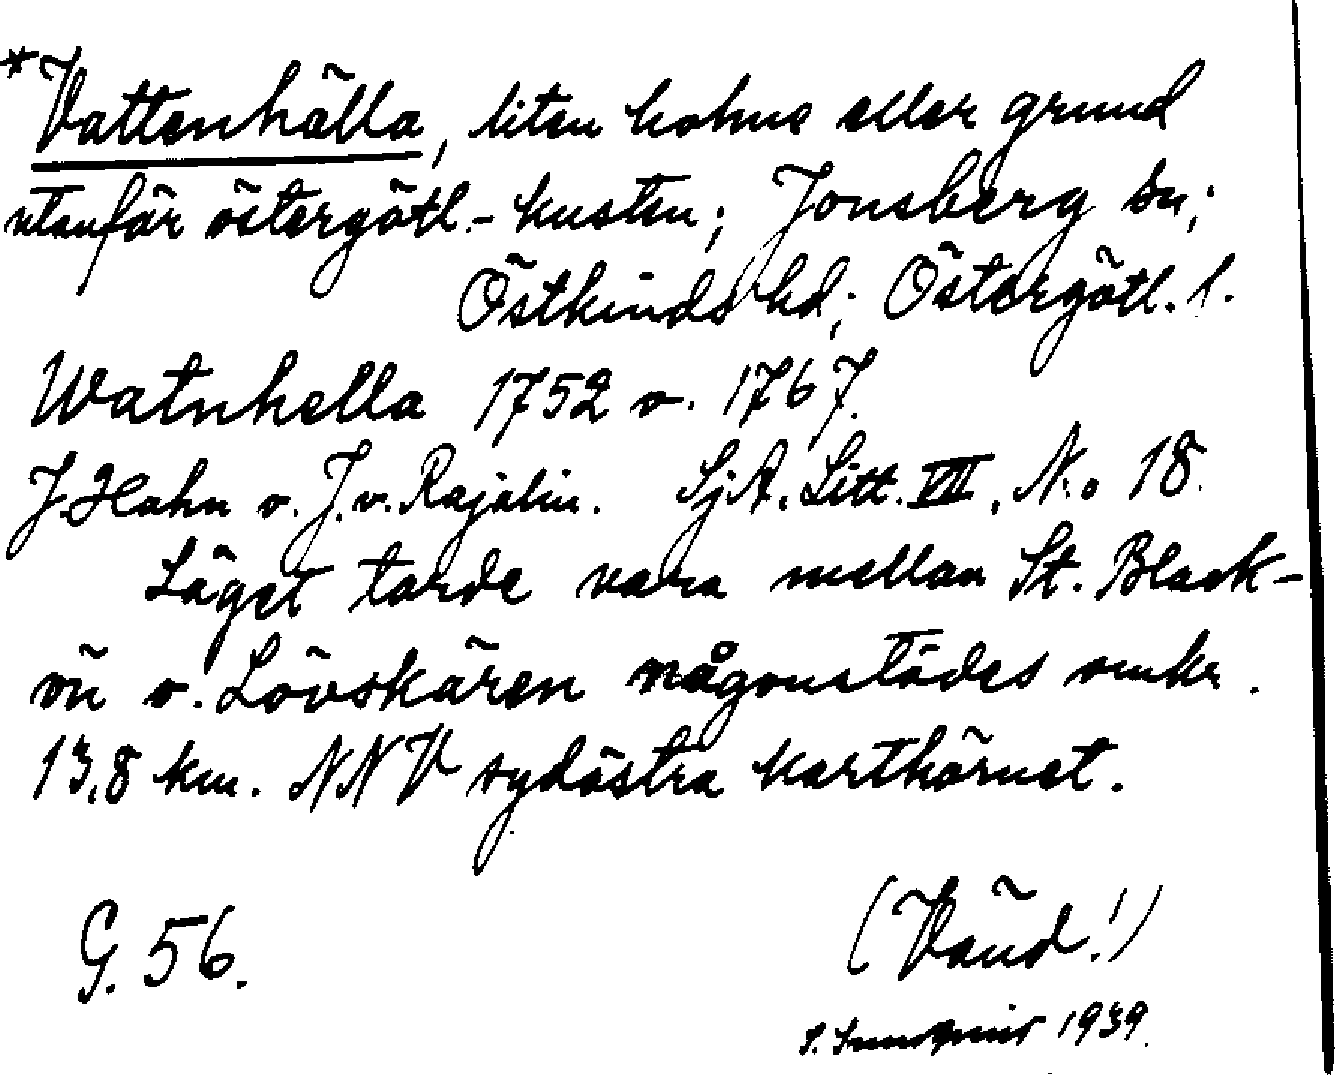 *Vattenhälla, liten holme eller grund
utanför östergötl.-kusten; Jonsberg sn;
Östkinds hd; Östergötl. l.
Watnhella 1752 o. 1767.
J. Hahn o. J. v. Rajalin. SjA. Litt. VII. N:o 18.
Läget torde vara mellan St. Black-
ön o. Lövskären någonstädes omkr.
13,8 km. NNV sydöstra karthörnet.
G. 56.
(Vänd!)
1939